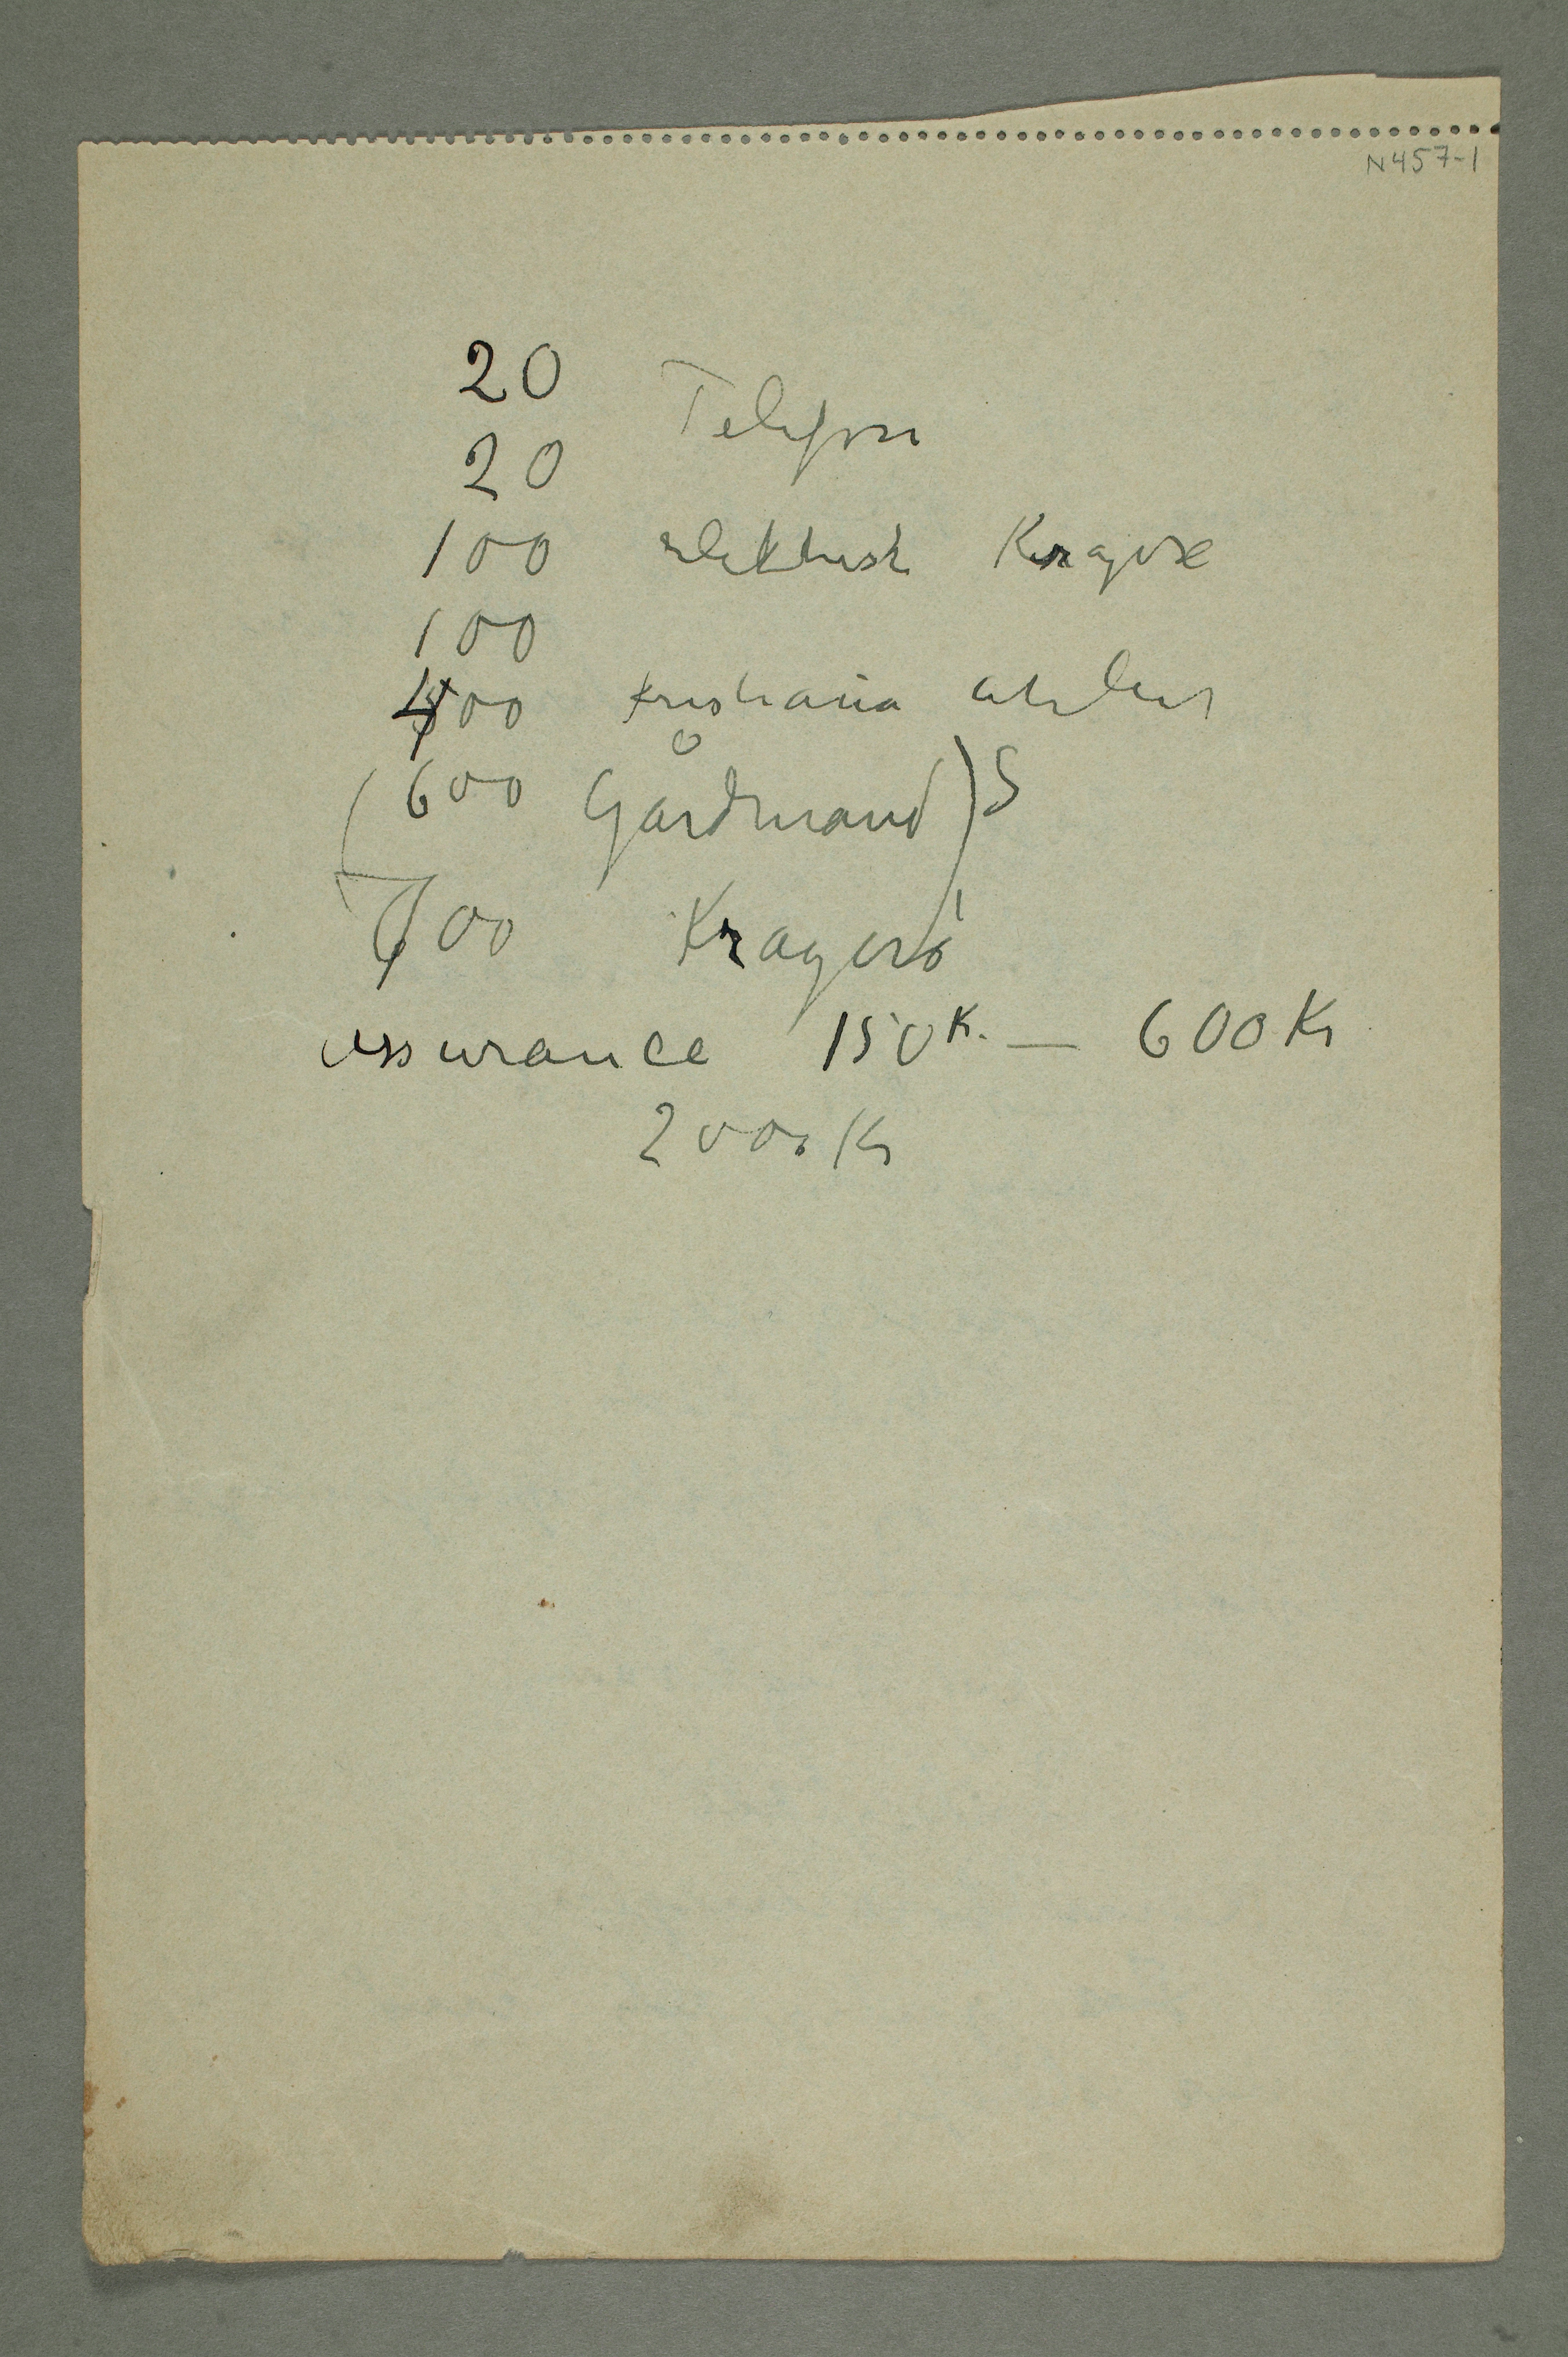 N457-1
20
Telefon
20
100 elektrisk Kragerø
100
400 Kristiania atelier
(600 Gårdmand) S
700 Kragerø
assurance 150 K. — 600 Kr
2000 Kr